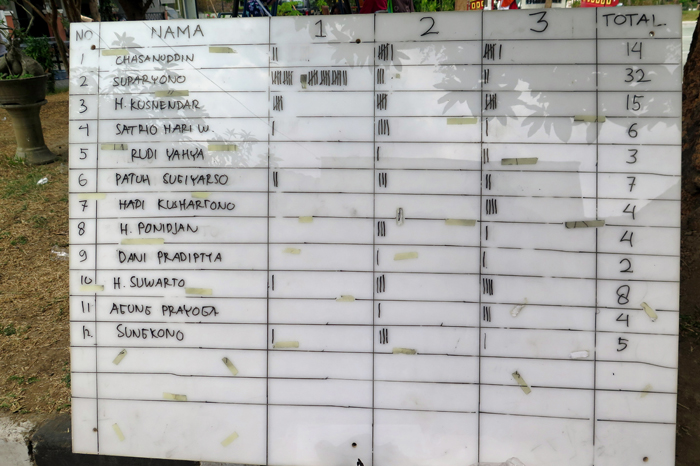 NO NAMA 1 2 3 TOTAL
1 CHASANUDDIN 14
2 SUPARYONO 32
3 H. KOSNENDAR 15
4 SATRIO HARI W 6
5 RUDI YAHYA 3
6 PATUH SUGIYARSO 7
7 HADI KUSHARTONO 4
8 H. PONIDJAN 4
9 DANI PRADIPTYA 2
10 H. SUWARTO 8
11 AGUNG PRAYOGA 4
12 SUNEKONO 5